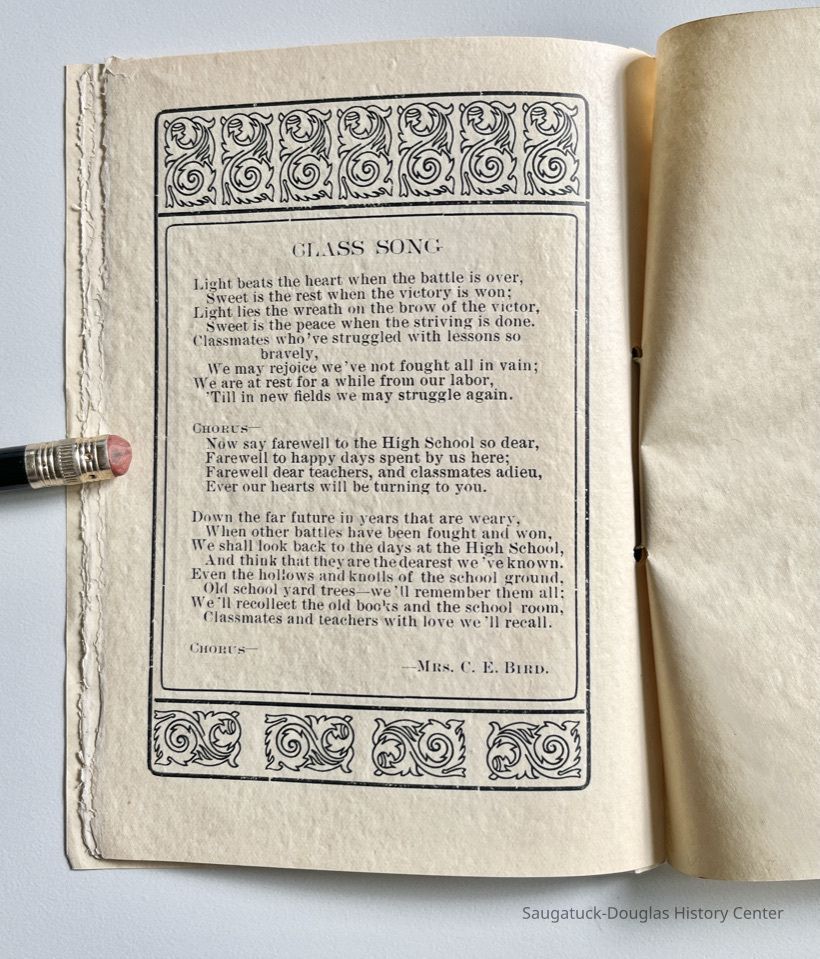 CLASS SONG
Light beats the heart when the battle is over,
Sweet is the rest when the victory is won;
Light lies the wreath on the brow of the victor,
Sweet is the peace when the striving is done.
Classmates who've struggled with lessons so
bravely,
We may rejoice we've not fought all in vain;
We are at rest for a while from our labor,
'Till in new fields we may struggle again.
CHORUS—
Now say farewell to the High School so dear,
Farewell to happy days spent by us here;
Farewell dear teachers, and classmates adieu,
Ever our hearts will be turning to you.
Down the far future in years that are weary,
When other battles have been fought and won,
We shall look back to the days at the High School,
And think that they are the dearest we've known.
Even the hollows and knolls of the school ground,
Old school yard trees—we'll remember them all;
We'll recollect the old books and the school room,
Classmates and teachers with love we'll recall.
CHORUS—
—MRS. C. E. BIRD.
Saugatuck-Douglas History Center